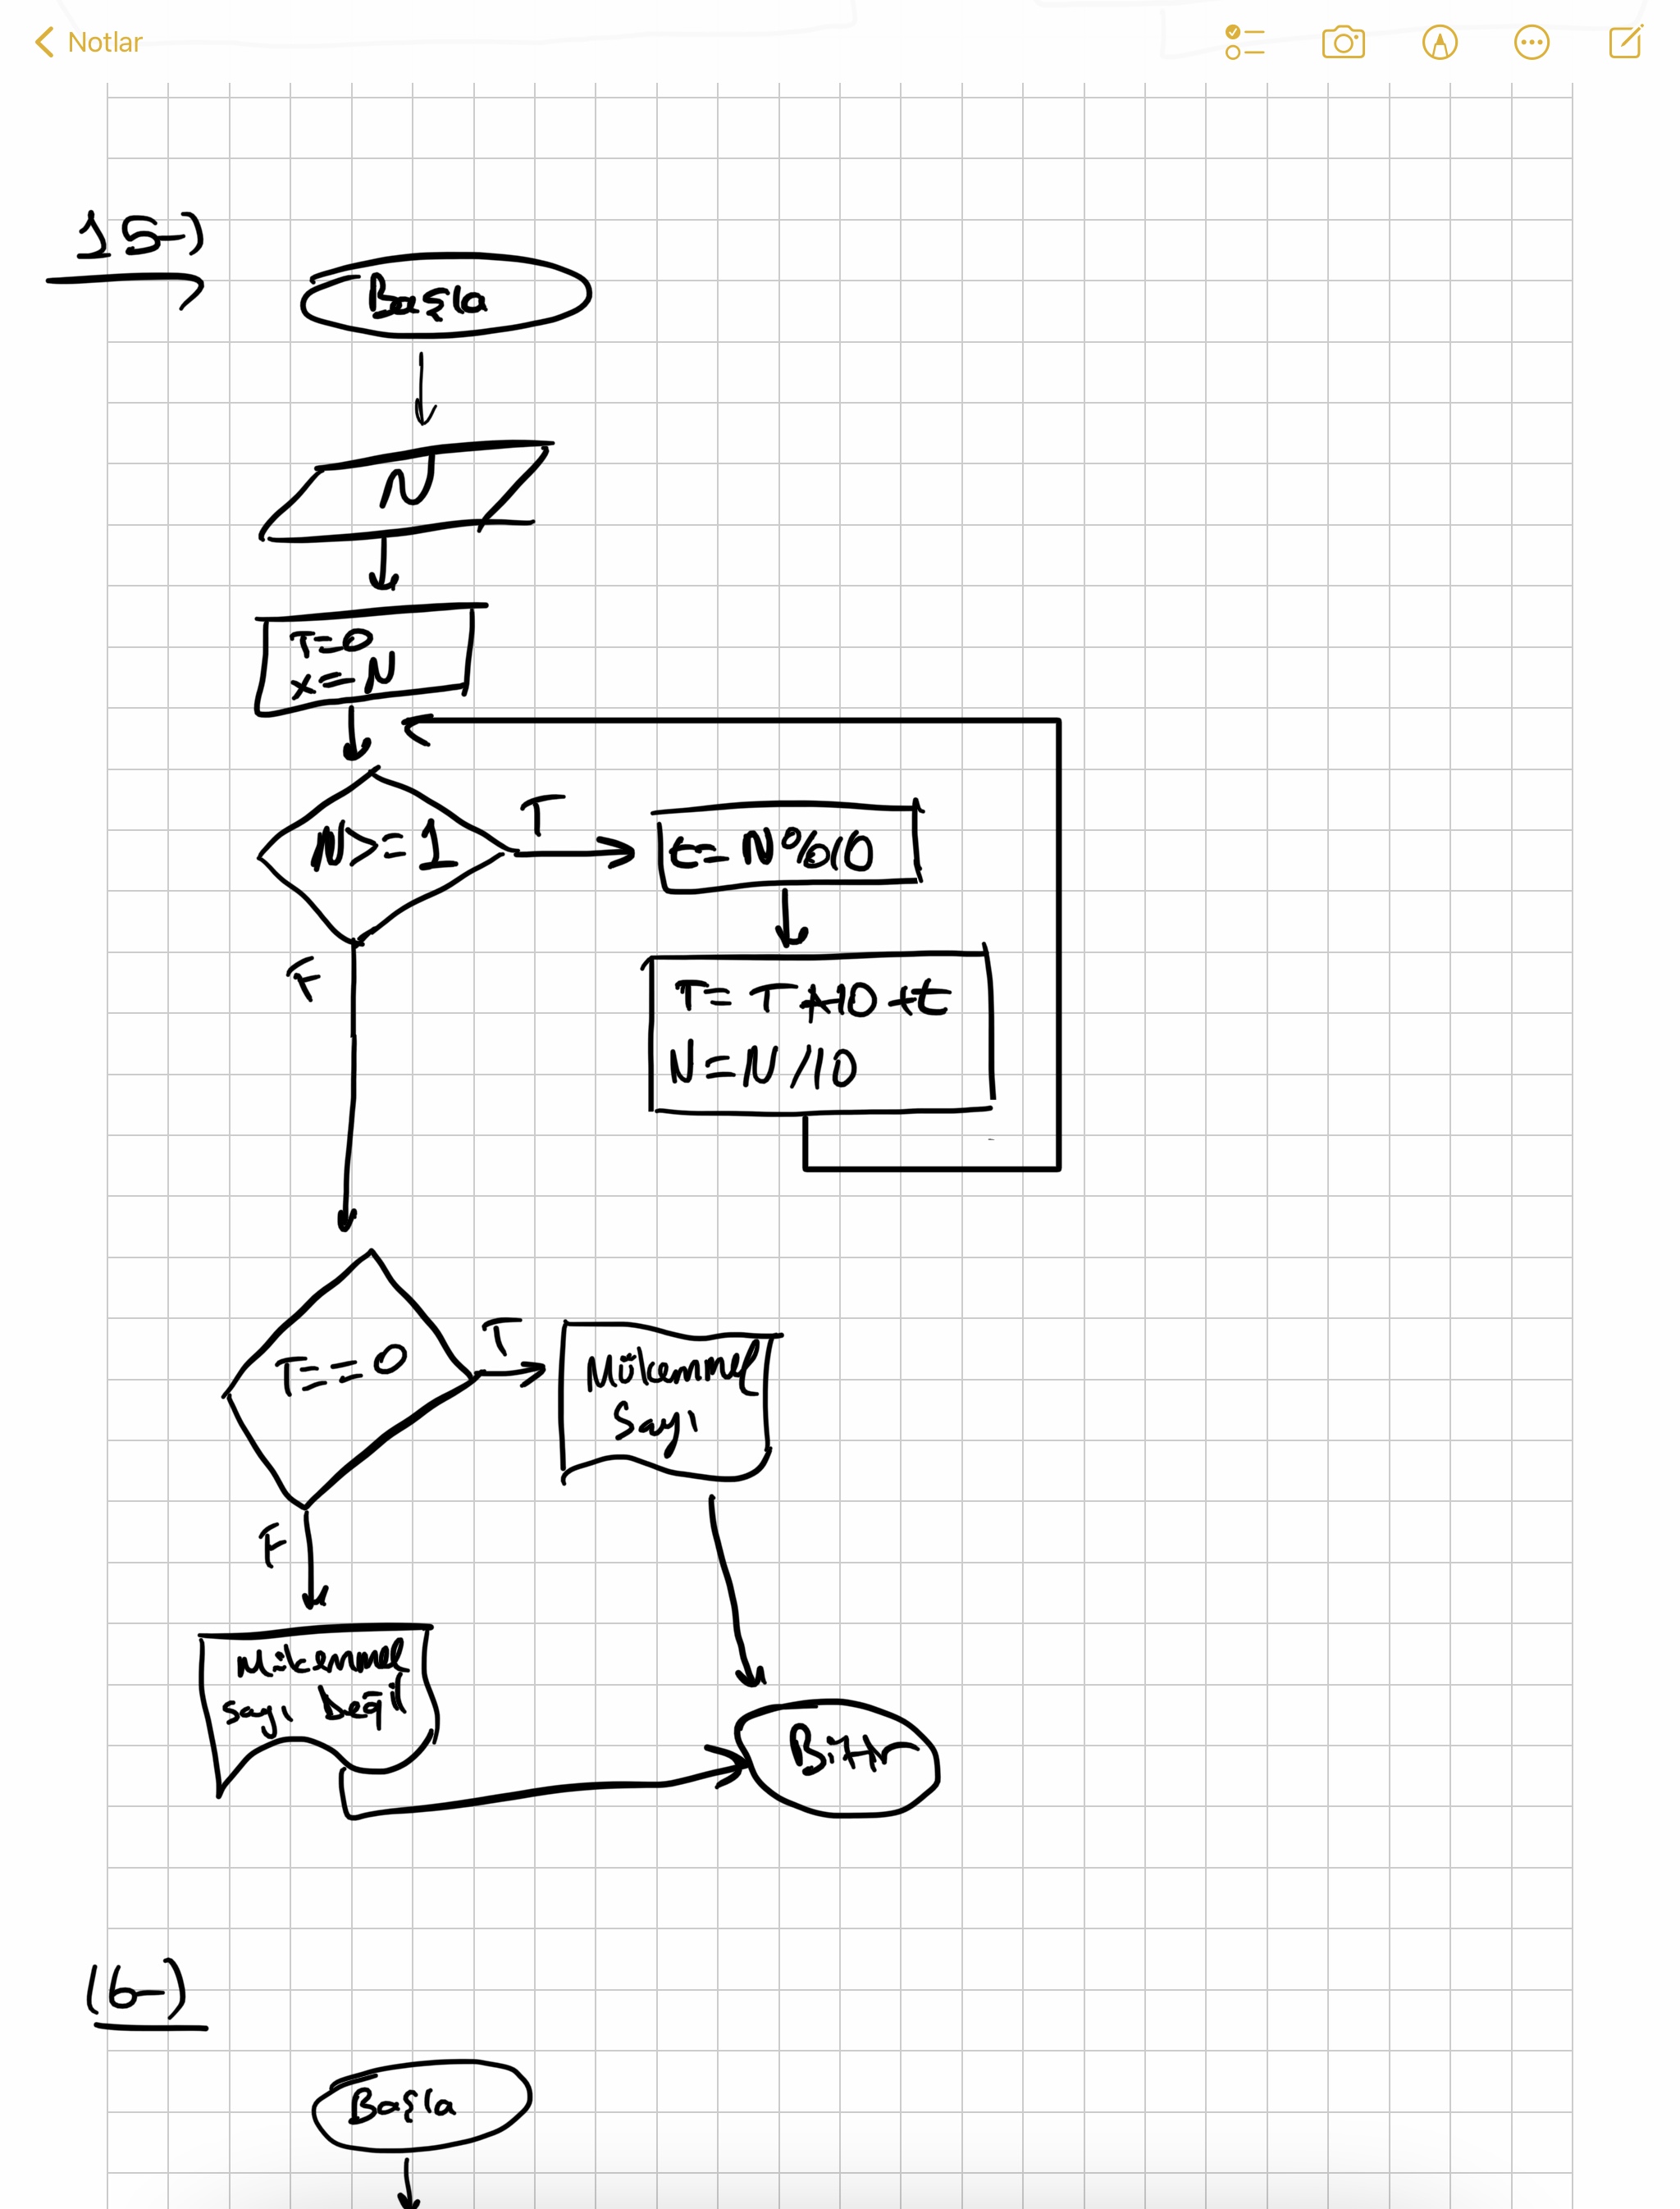 Notlar
15-)
Başla
N
T=0
x=N
N>=1
T
t=N%10
F
T=T*10+t
N=N/10
T==0
T
Mükemmel
Sayı
F
Mükemmel
sayı Değil
Bitir
16-)
Başla